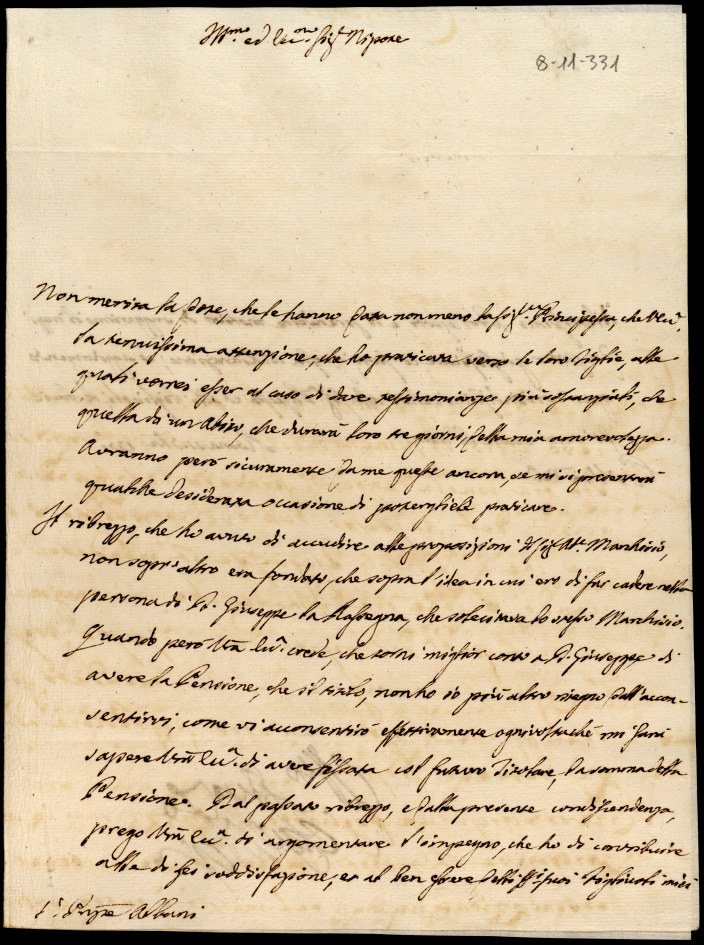 Ill.mo ed Ecc.mo Sig.r Nipote
8-11-331
Non merita la lode, che le hanno data non meno la Sig.ra Principessa, che V.E.,
la tenuissima attenzione, che ho praticata verso le loro Figlie, alle
quali vorrei esser al caso di dare testimonianze più sostanziali, che
quella di un Abito, che durerà loro tre giorni, della mia amorevolezza.
Avranno però sicuramente da me queste ancora, se mi si presenterà
qualche desiderata occasione di poterglielo praticare.
Il ribrezzo, che ho avuto di accudire alle proposizioni del Sig.r Ab.e Marchisio,
non sopr'altro era fondato, che sopra l'idea in cui ero di far cadere nella
persona di D. Giuseppe la Rassegna, che solecitava lo stesso Marchisio.
Quando però V.ra Ecc.a crede, che torni miglior conto a D. Giuseppe di
avere la Pensione, che il titolo, non ho io più altro ritegno dall'accon-
sentirvi, come vi acconsentirò effettivamente ogni volta che mi farà
sapere V.ra Ecc.a di aver fissata col futuro Titolare, la somma della
Pensione. Dal passato ribrezzo, e dalla presente condiscendenza,
prego V.ra Ecc.a di argomentare l'impegno, che ho di contribuire
alla di Lei soddisfazione, et al ben essere delli suoi Figliuoli miei
S.r Pnpe Albani